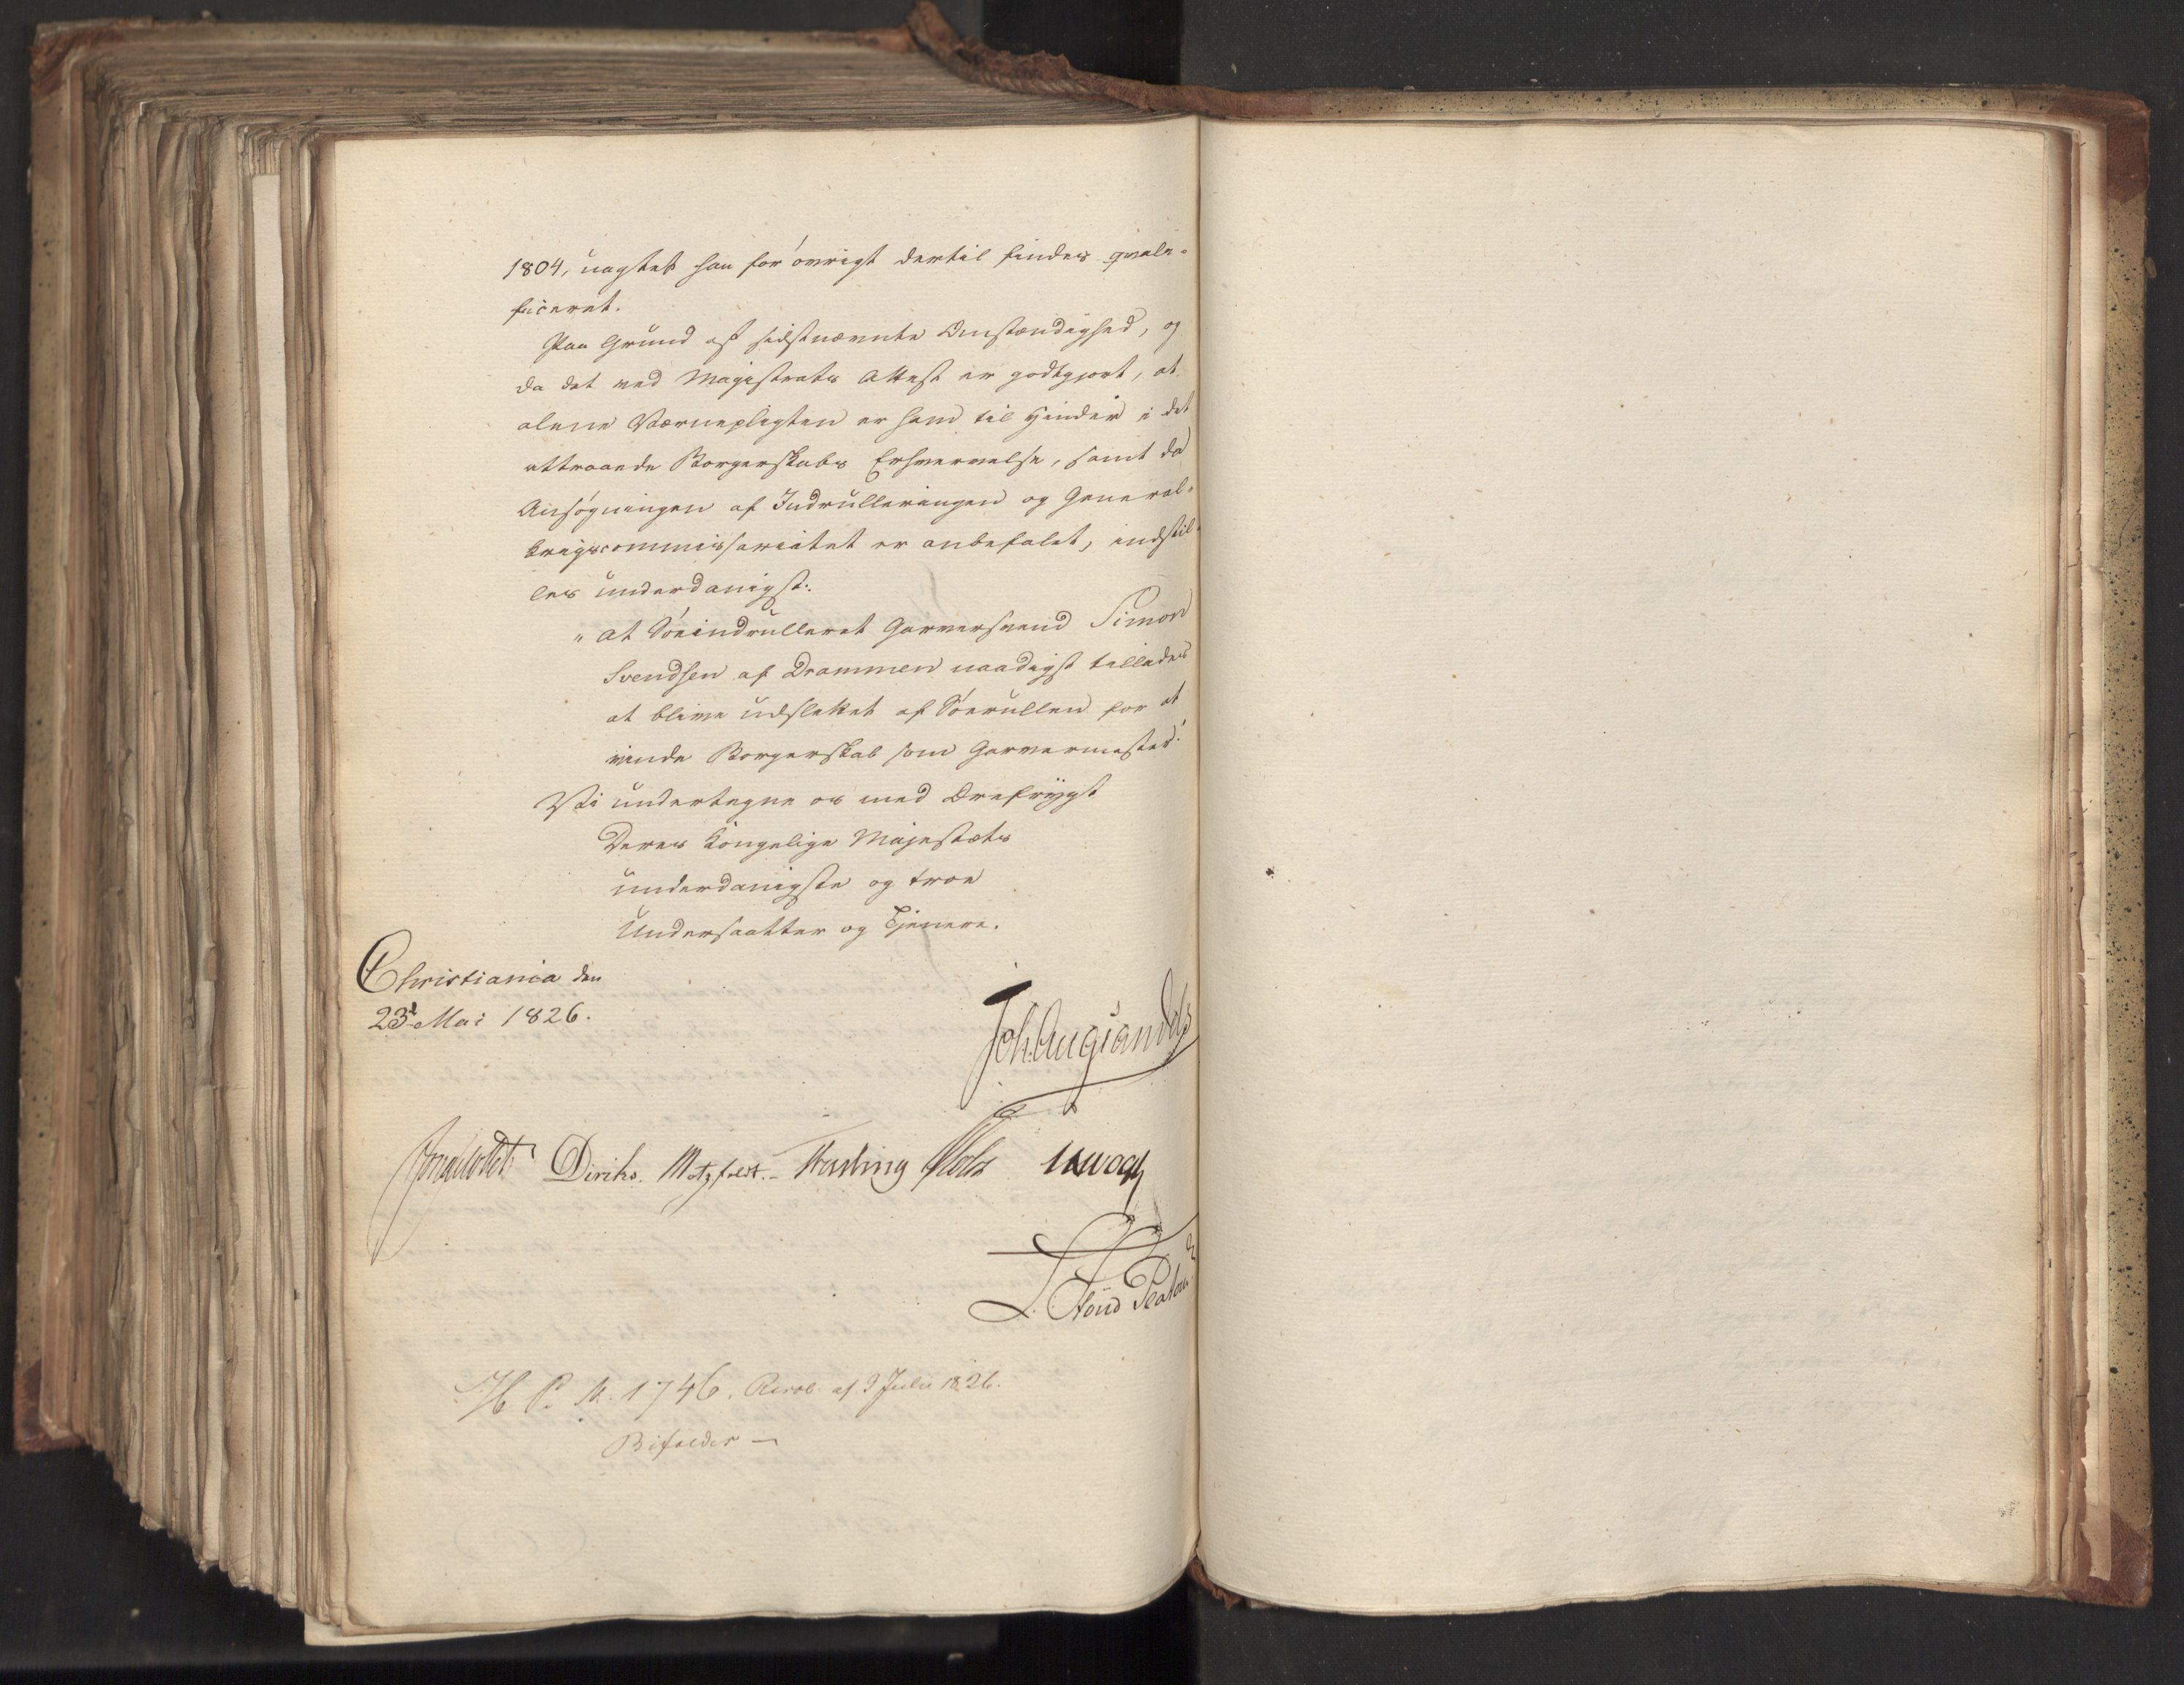 1804, uagtet han for øvrigt dertil findes qvali-
ficeret.
Paa Grund af sidstnævnte Omstændighed, og
da det ved Magistrats Attest er godtgjort, at
alene Værnepligten er ham til Hinder i det
attraaede Borgerskabs Erhvervelse, samt da
Ansøgningen af Indrulleringen og General-
krigscommissariatet er anbefalet, indstil-
les underdanigst:
„at Søeindrulleret Garversvend Simon
Svendsen af Drammen naadigst tillades
at blive udslettet af Søerullen for at
vinde Borgerskab som Garvermester."
Vi undertegne os med Ærefrygt
Deres Kongelige Majestæts
underdanigste og troe
Undersaatter og Tjenere.
Christiania den
23d Mai 1826.
Joh. Aug. Sandels
Jonas Collett Diriks. Motzfeldt. Fasting Holst
L. Stoud Platou
N. 1746. Resol. af 9 Julii 1826.
Bifaldes